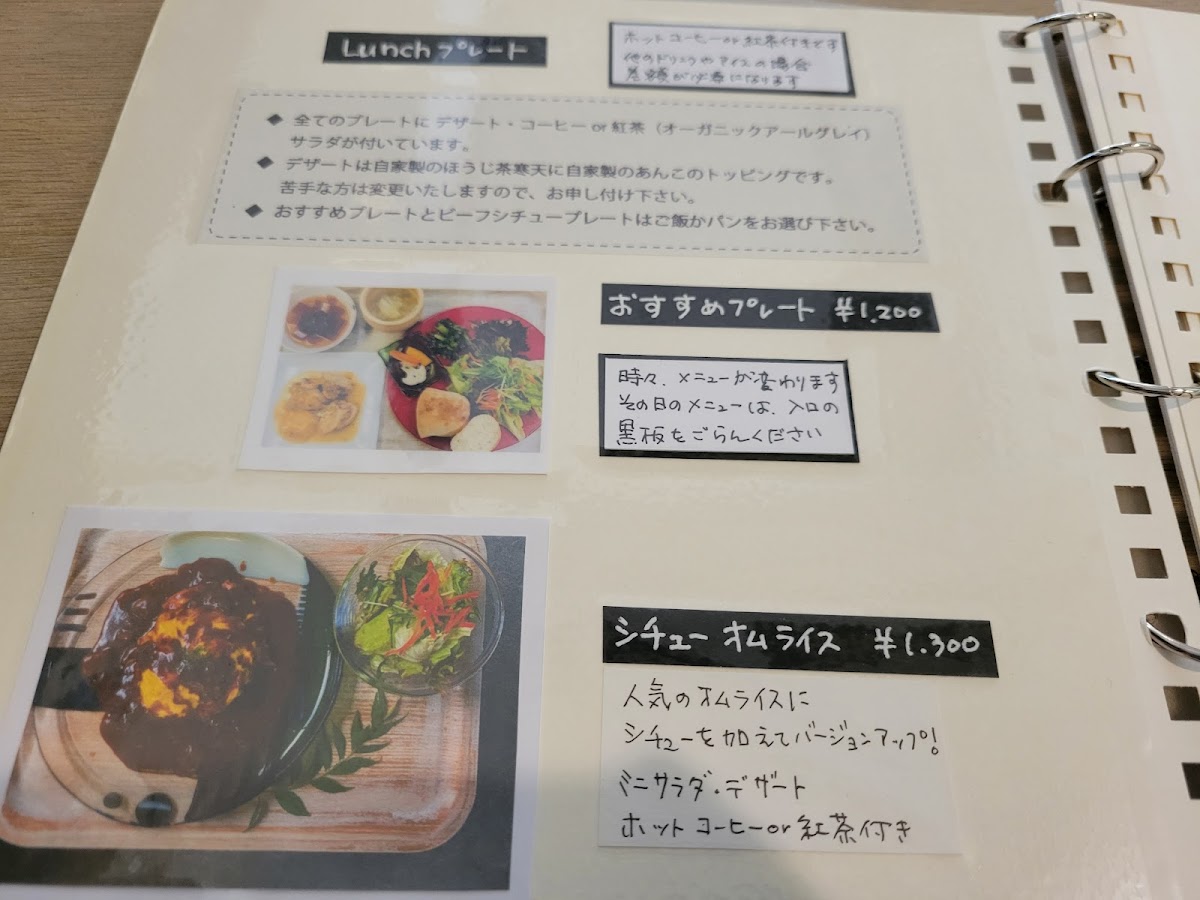 Lunch プレート
ホットコーヒーor紅茶付きです
他のドリンクやアイスの場合
差額が必要になります
◆ 全てのプレートに デザート・コーヒー or 紅茶（オーガニックアールグレイ）
サラダが付いています。
◆ デザートは自家製のほうじ茶寒天に自家製のあんこのトッピングです。
苦手な方は変更いたしますので、お申し付け下さい。
◆ おすすめプレートとビーフシチュープレートはご飯かパンをお選び下さい。
おすすめプレート ¥1,200
時々、メニューが変わります
その日のメニューは、入口の
黒板をごらんください
シチュー オムライス ¥1,300
人気のオムライスに
シチューを加えてバージョンアップ!
ミニサラダ・デザート
ホットコーヒーor紅茶付き